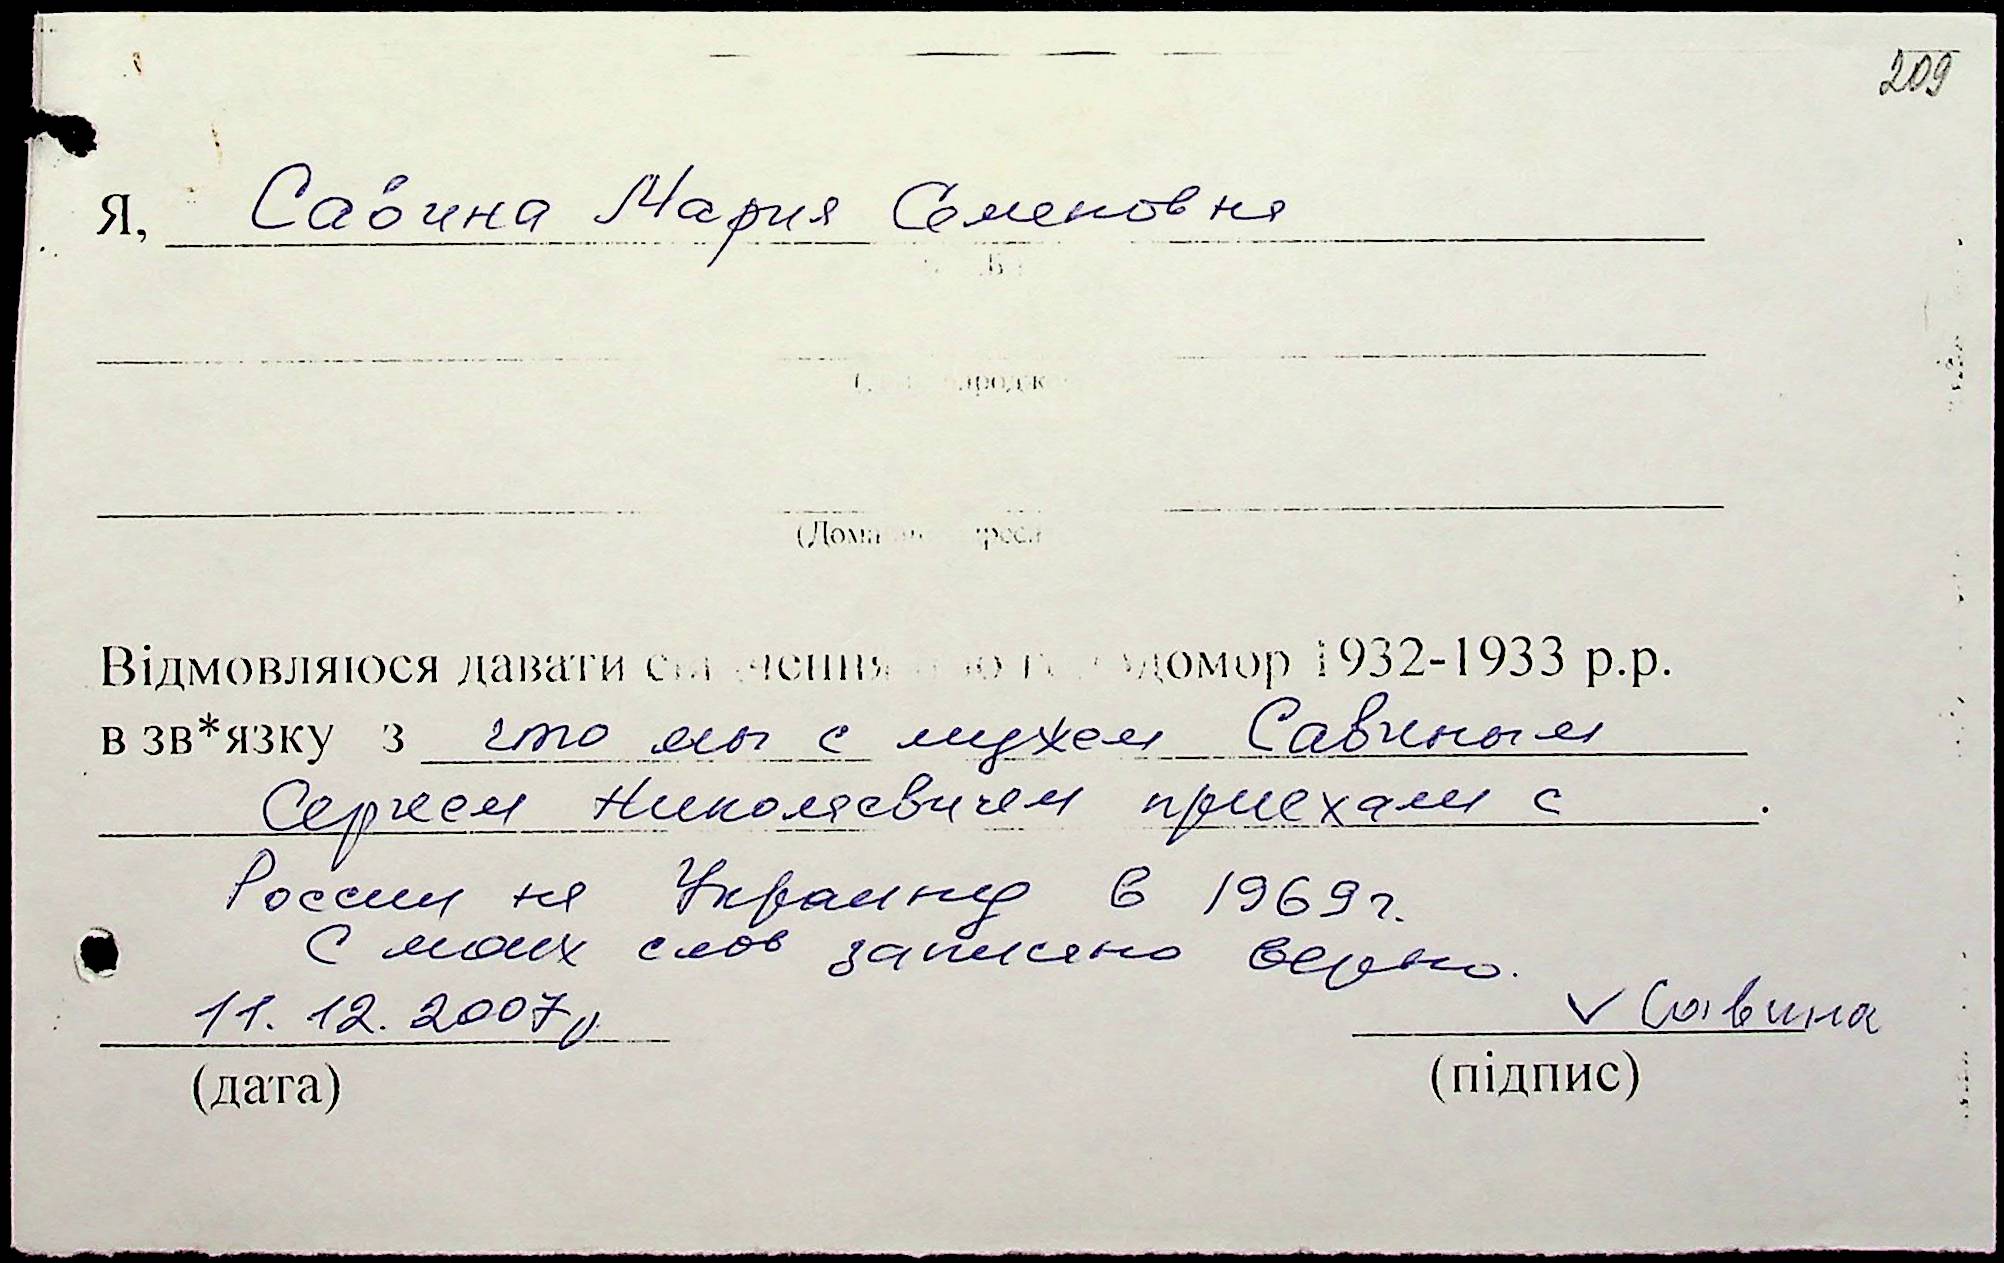 209
Я, Савина Мария Семеновна
Відмовляюся давати свідчення про голодомор 1932-1933 р.р.
в зв*язку з что мы с мужем Савиным
Сергеем Николаевичем приехали с .
России на Украину в 1969г.
С моих слов записано верно.
11.12.2007р. ✓ Савина
(дата) (підпис)